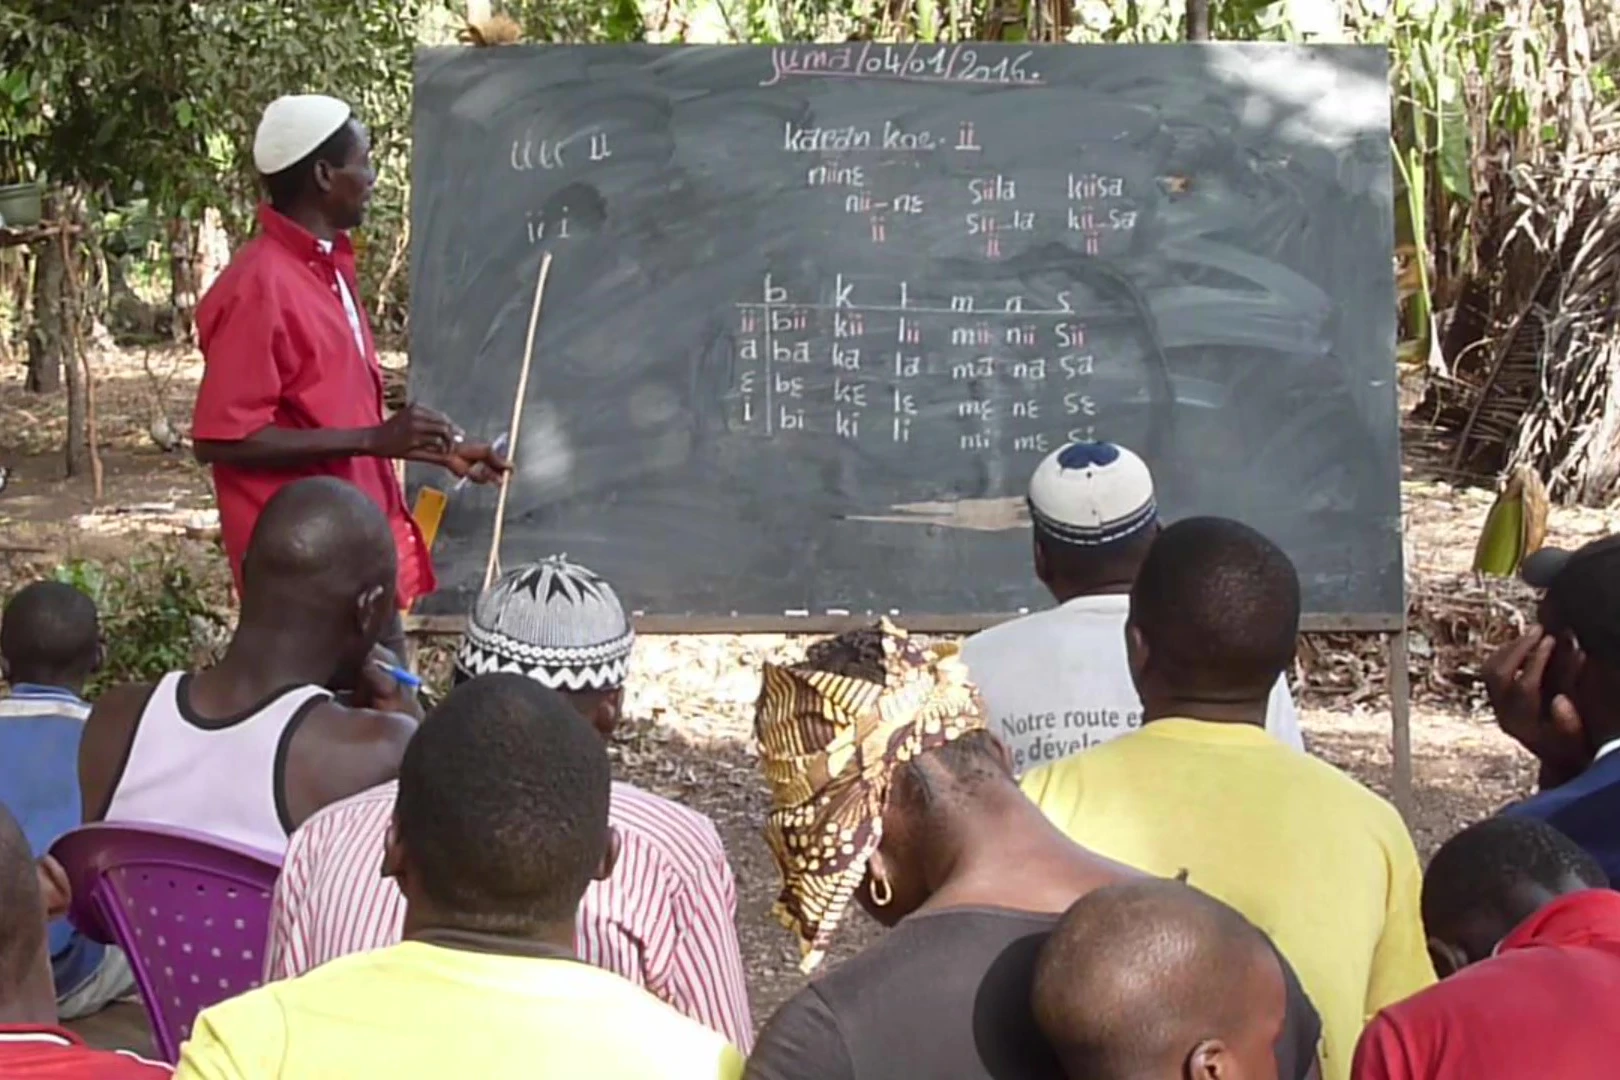 Juma/04/01/2016.
ıı i
karan kae. ii
niinɛ siila kiisa
nii-nɛ sii-la kii-sa
ii ii ii
b k l m n s
ii bii kii lii mii nii sii
a ba ka la ma na sa
ɛ bɛ kɛ lɛ mɛ nɛ sɛ
i bi ki li mi mɛ si
Notre route
de